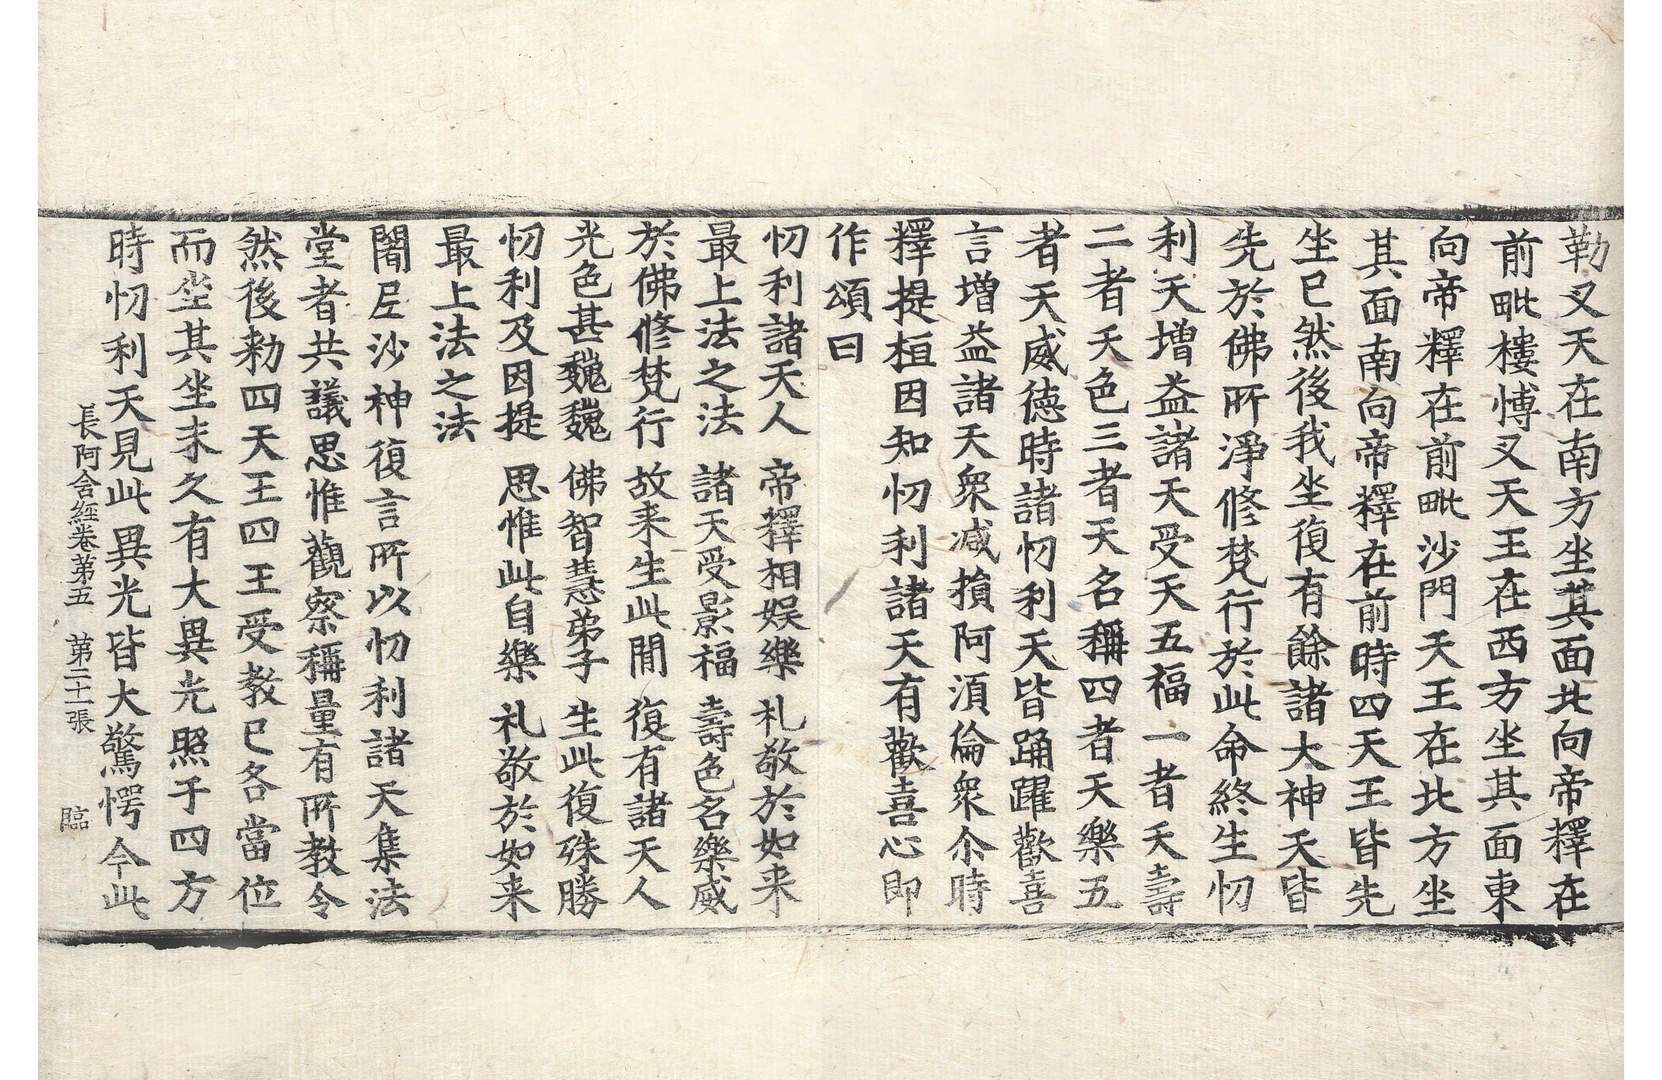 勒叉天在南方坐其面北向帝釋在
前毗樓博叉天王在西方坐其面東
向帝釋在前毗沙門天王在北方坐
其面南向帝釋在前時四天王皆先
坐已然後我坐復有餘諸大神天皆
先於佛所淨修梵行於此命終生忉
利天增益諸天受天五福一者天壽
二者天色三者天名稱四者天樂五
者天威德時諸忉利天皆踊躍歡喜
言增益諸天衆减損阿湏倫衆尒時
釋提桓因知忉利諸天有歡喜心即
作頌曰
忉利諸天人　帝釋相娛樂　礼敬於如来
最上法之法　諸天受影福　壽色名樂威
於佛修梵行　故来生此閒　復有諸天人
光色甚巍巍　佛智慧弟子　生此復殊勝
忉利及因提　思惟此自樂　礼敬於如来
最上法之法
闍尼沙神復言所以忉利諸天集法
堂者共議思惟觀察稱量有所教令
然後勑四天王四王受教已各當位
而坐其坐未久有大異光照于四方
時忉利天見此異光皆大驚愕今此
長阿含經卷第五　第二十一張　臨